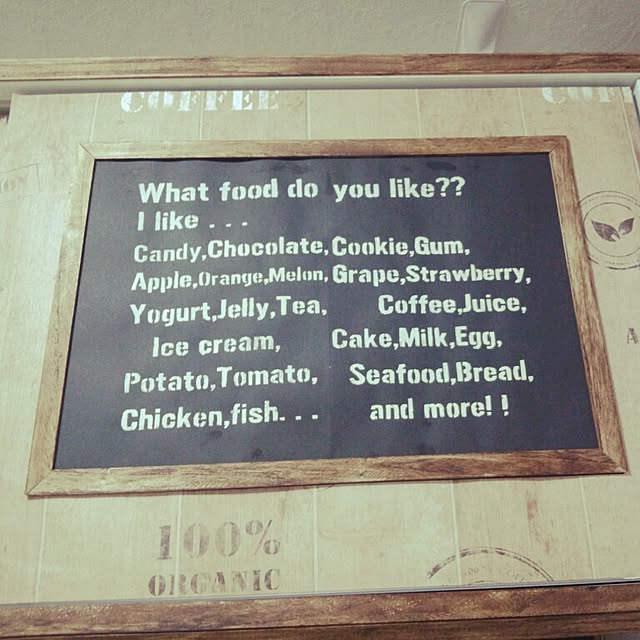 COFFEE
What food do you like??
I like . . .
Candy,Chocolate,Cookie,Gum,
Apple,Orange,Melon,Grape,Strawberry,
Yogurt,Jelly,Tea, Coffee,Juice,
Ice cream, Cake,Milk,Egg,
Potato,Tomato, Seafood,Bread,
Chicken,fish. . . and more!!
100%
ORGANIC